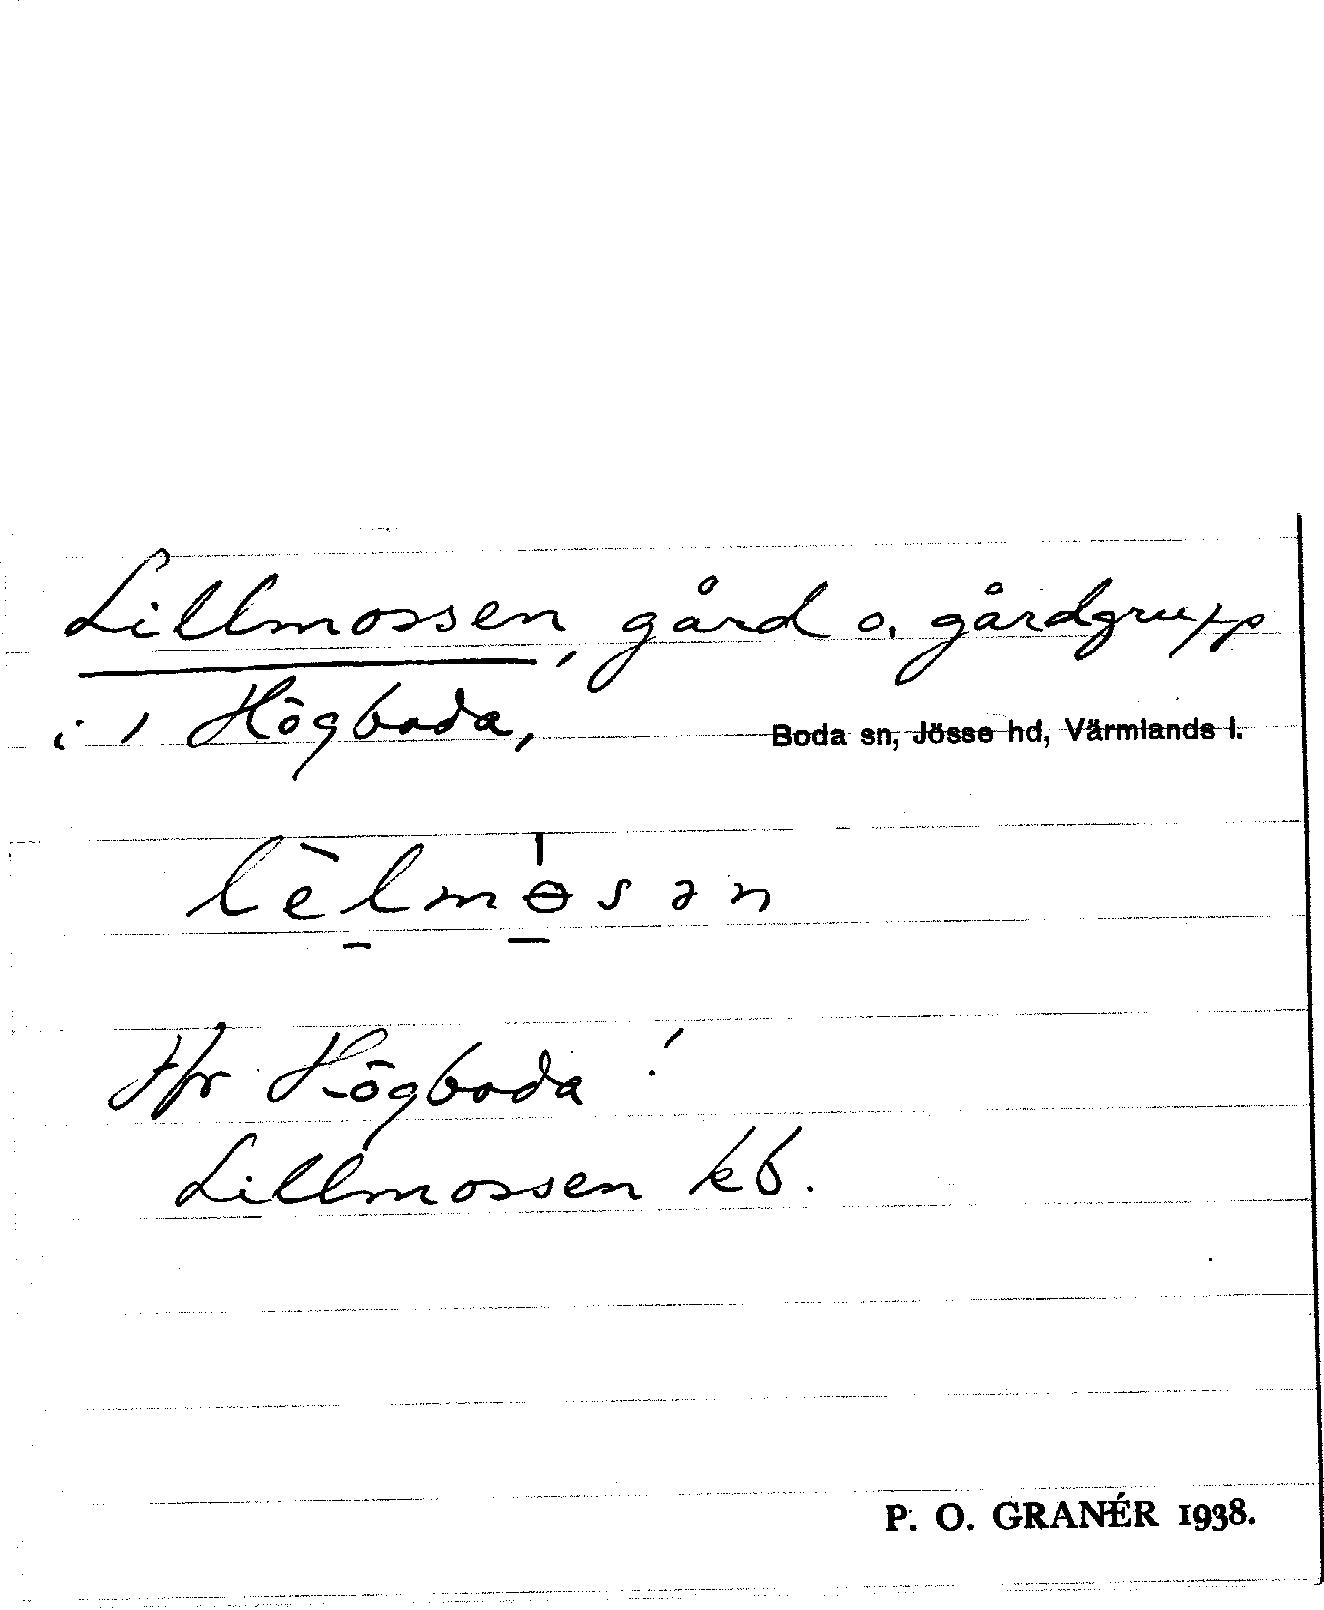 Lillmossen, gård o. gårdgrupp
i 1 Högboda, Boda sn, Jösse hd, Värmlands l.
lèlmɵ̍sən
Hfr Högboda!
Lillmossen kb.
P. O. GRANÉR 1938.